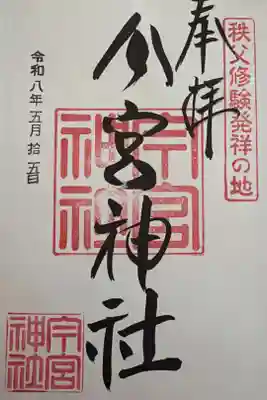 秩父修験発祥の地
奉拝
今宮神社
今宮神社
令和八年五月拾五日
今宮神社